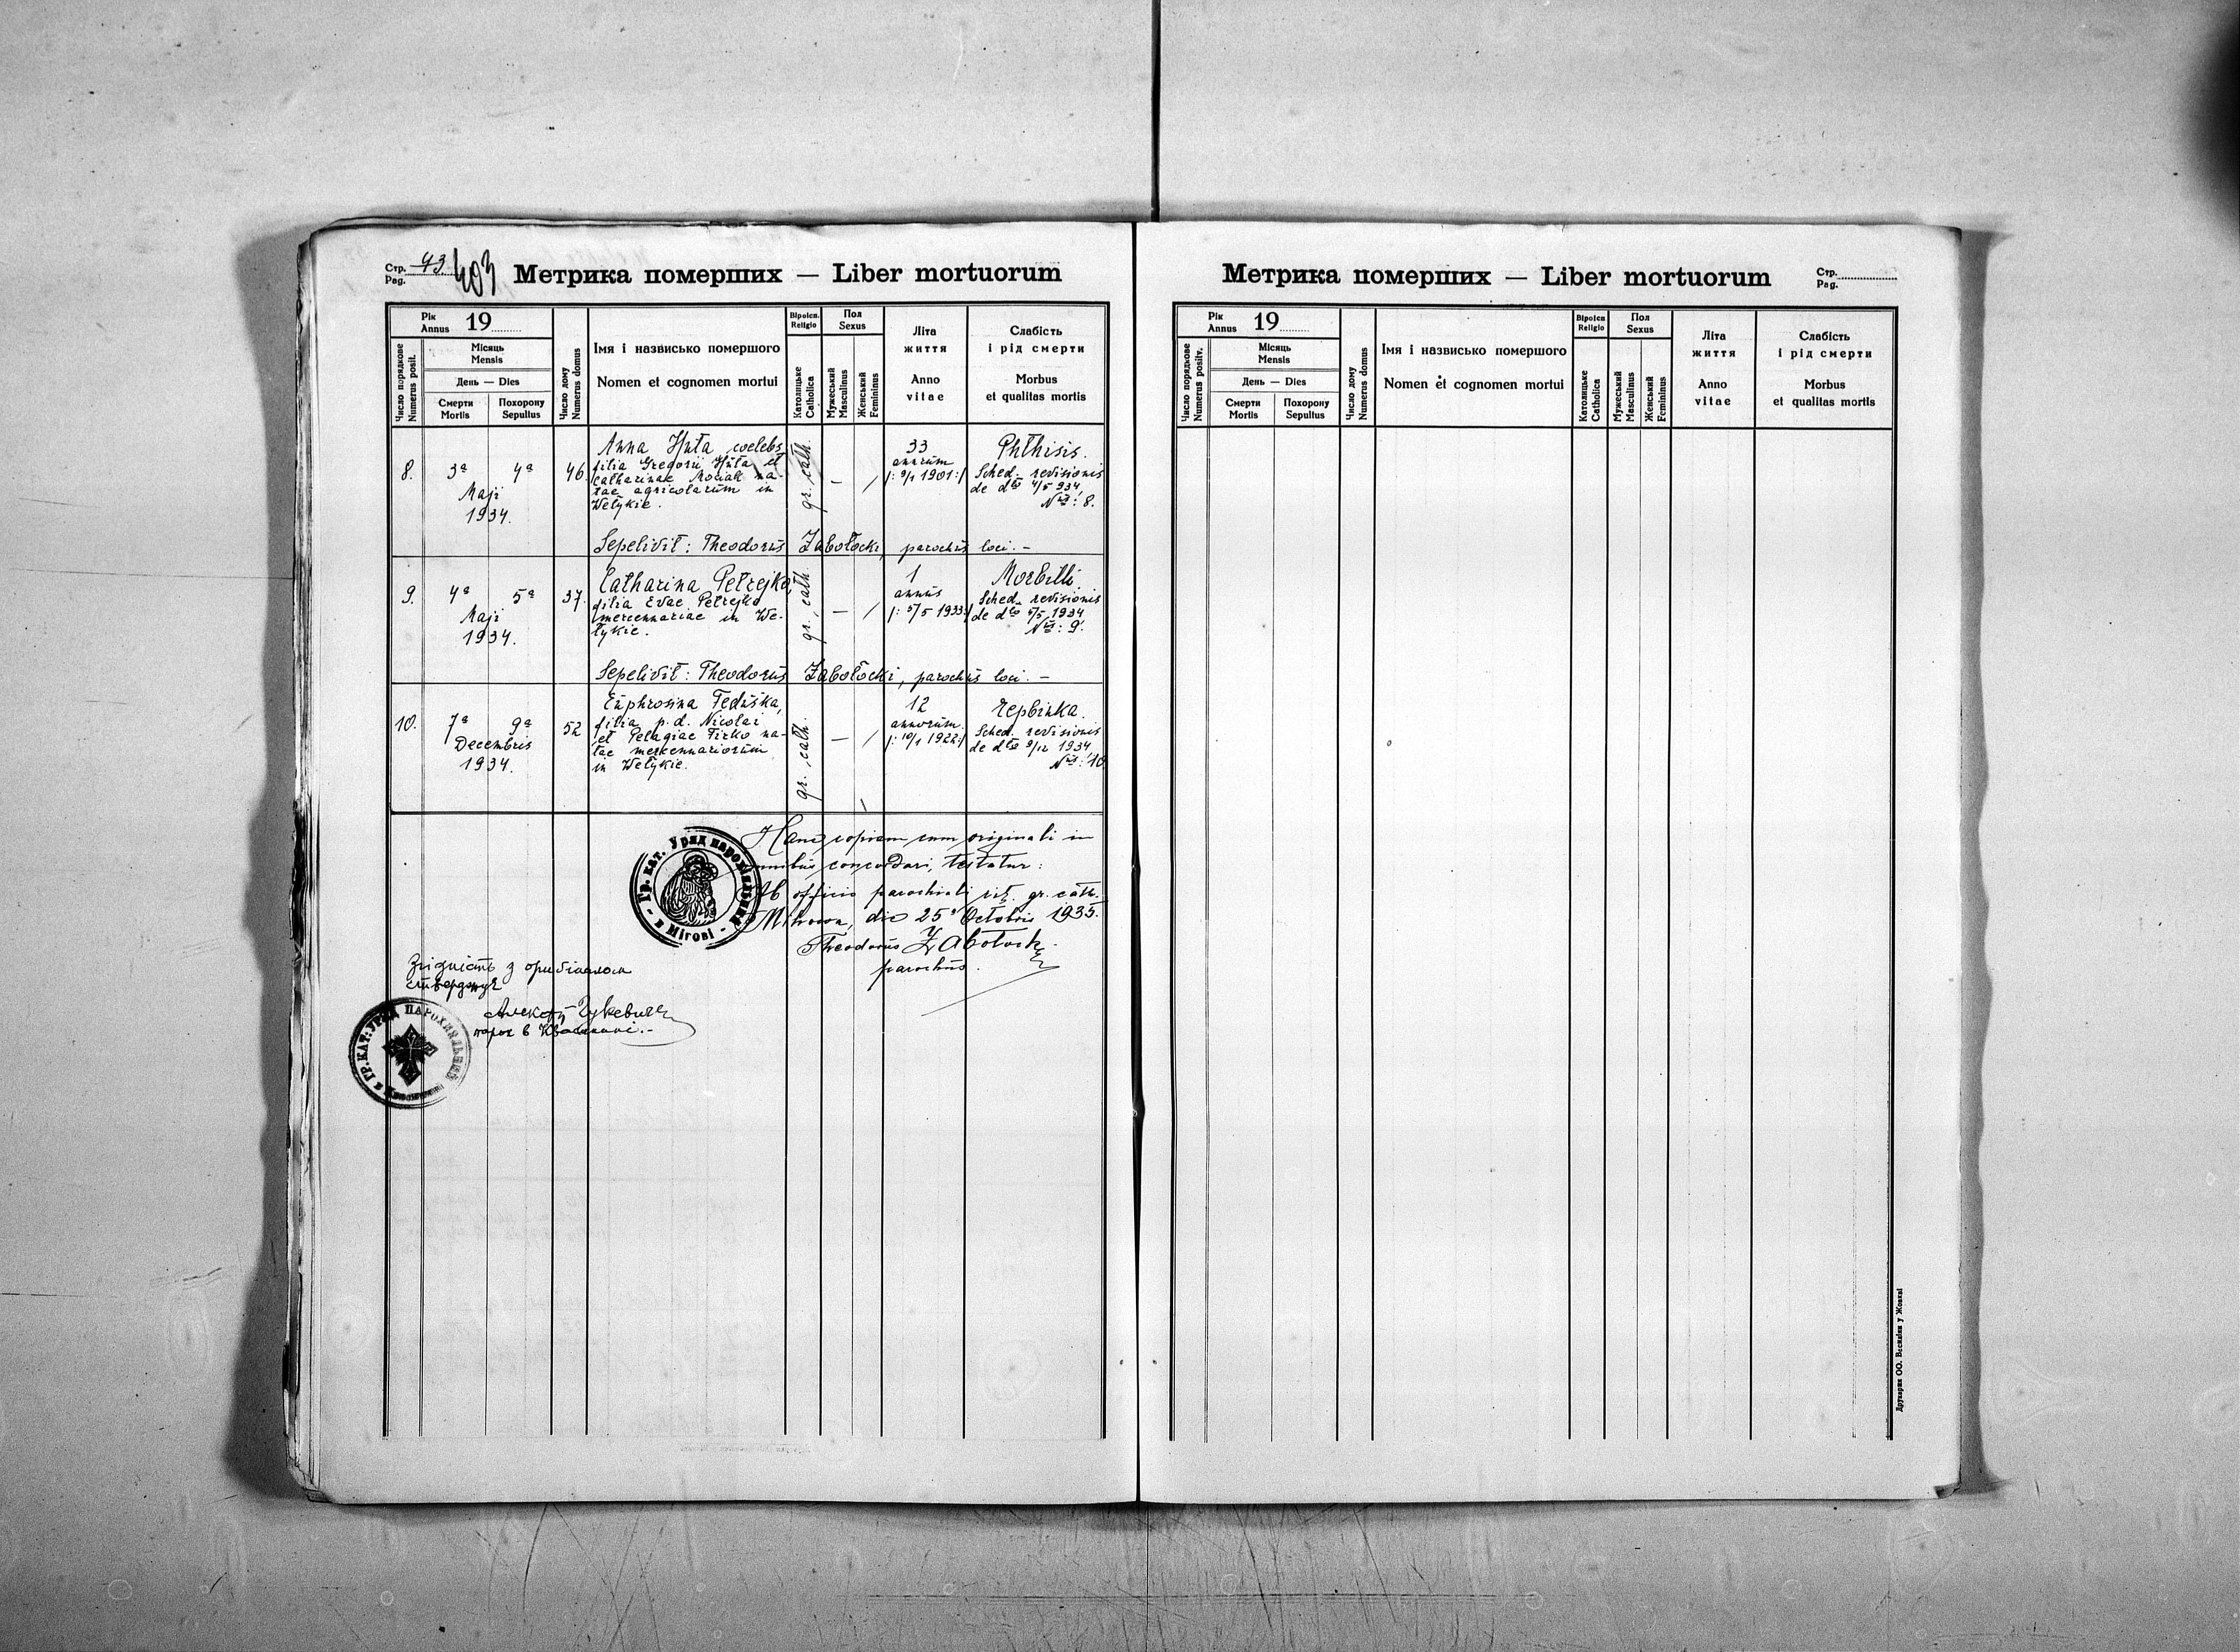 Стр. 43. 403
Pag.
Метрика померших — Liber mortuorum
Рік
Annus 19
Число порядкове
Numerus posit.
Місяць
Mensis
День — Dies
Смерти
Mortis
Похорону
Sepultus
Число дому
Numerus domus
Імя і назвисько помершого
Nomen et cognomen mortui
Віроісп.
Religio
Католицьке
Catholica
Пол
Sexus
Мужеський
Masculinus
Женський
Femininus
Літа
життя
Anno
vitae
Слабість
і рід смерти
Morbus
et qualitas mortis
8.
3ª 4ª
Maji
1934.
46
Anna Huta, coelebs,
filia Gregorii Huta et
Catharinae na-
tae agricolarum in
Wełykie.
gr. cath.
— /
33
annorum
/: 9/1 1901:/
Phthisis.
Sched. revisionis
de dto 4/5 934,
Nrus: 8.
Sepelivit: Theodorus Zabołocki, parochus loci. —
9.
4ª 5ª
Maji
1934.
37.
Catharina Petrejko,
filia Evae Petrejko
mercennariae in We-
łykie.
gr. cath.
— /
1
annus
/: 5/5 1933:/
Morbilli
Sched. revisionis
de dto 5/5 1934
Nrus: 9.
Sepelivit: Theodorus Zabołocki, parochus loci. —
10.
7ª 9ª
Decembris
1934.
52
Euphrosina Feduśka,
filia p. d. Nicolai
et Pelagiae Firko na-
tae mercennariorum
in Wełykie.
gr. cath.
— /
12
annorum
/: 10/1 1922:/
Червінка.
Sched. revisionis
de dto 9/12 1934
Nrus: 10
Hanc copiam cum originali in
omnibus concordari, testatur:
Ab officio parochiali rit. gr. cath.
die 25ª Octobris 1935.
Theodorus Zabołocki
parochus.
Гр. кат. Уряд парохіяльний в Мігові
Згідність з оригіналом
стверджує
парох в
ГР. КАТ. УРЯД ПАРОХІЯЛЬНИЙ
Метрика померших — Liber mortuorum
Стр.
Pag.
Рік
Annus 19
Число порядкове
Numerus positv.
Місяць
Mensis
День — Dies
Смерти
Mortis
Похорону
Sepultus
Число дому
Numerus domus
Імя і назвисько помершого
Nomen et cognomen mortui
Віроісп.
Religio
Католицьке
Catholica
Пол
Sexus
Мужеський
Masculinus
Женський
Femininus
Літа
життя
Anno
vitae
Слабість
і рід смерти
Morbus
et qualitas mortis
Друкарня ОО. Василіян у Жовкві